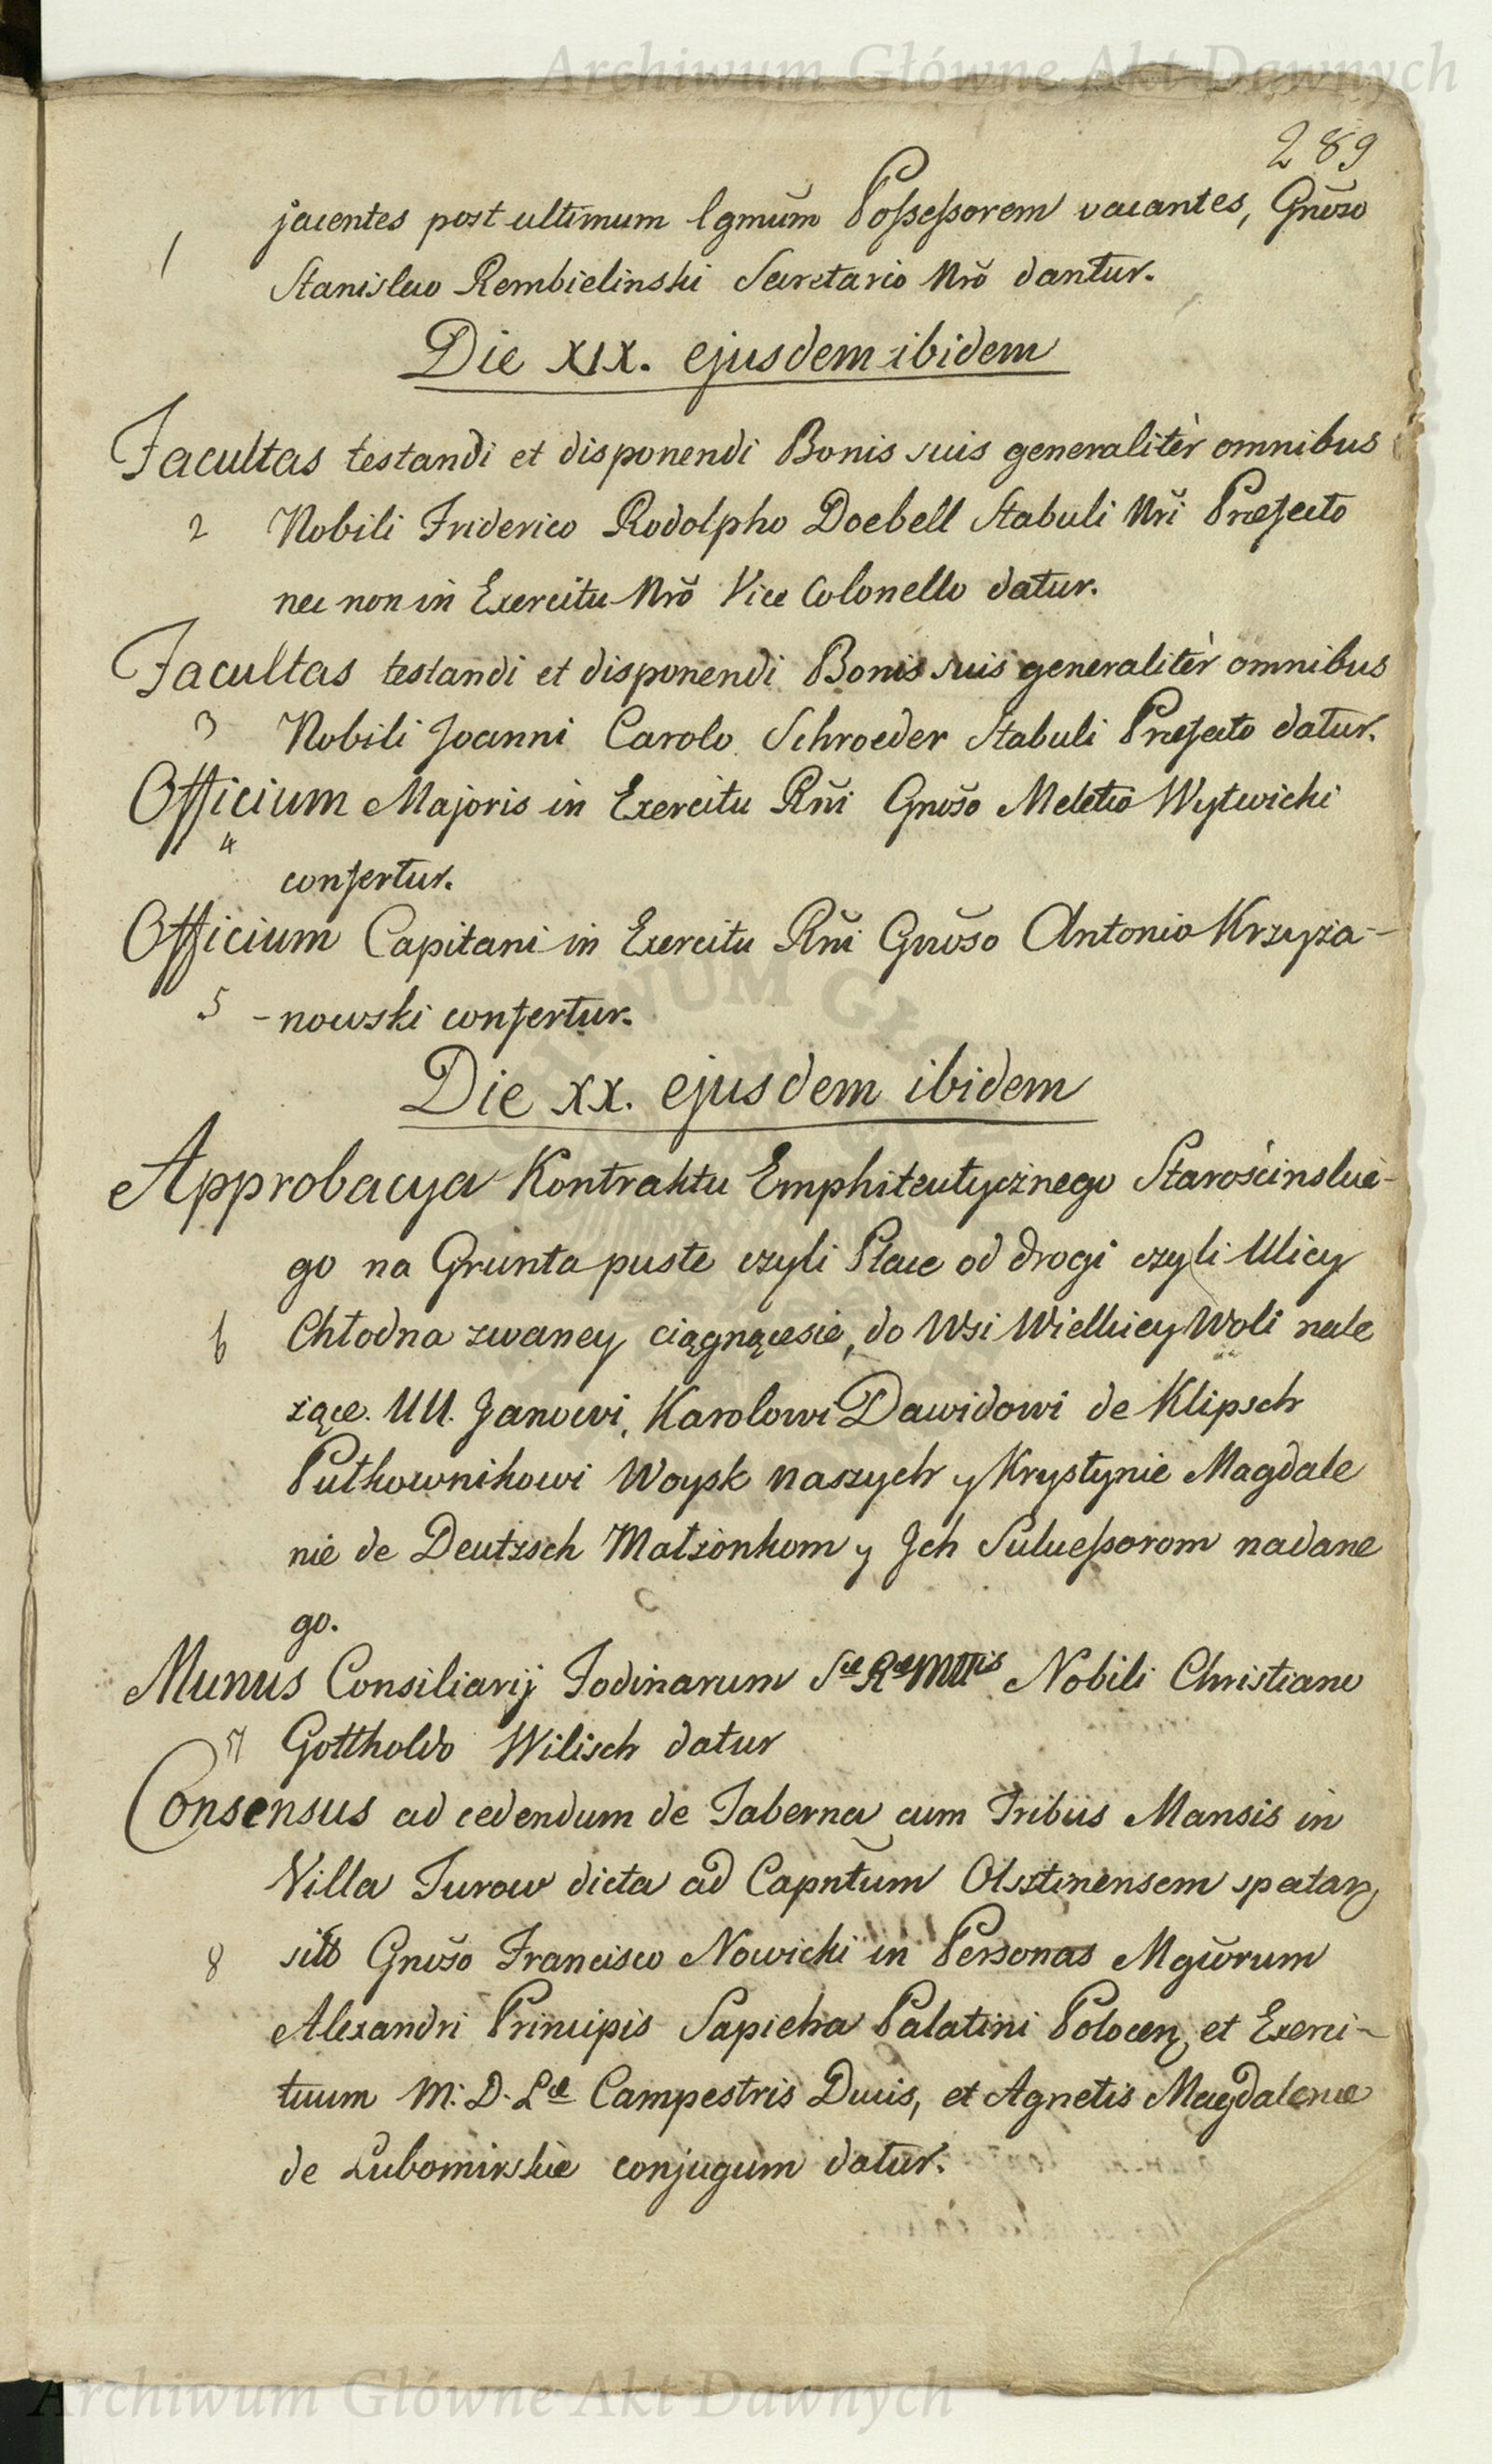 Archiwum Główne Akt Dawnych
289
jacentes post ultimum lgmũm Possessorem vacantes, Gnõso
1 Stanislao Rembielinski Secretario Nrõ dantur.
Die XIX. ejusdem ibidem
Facultas testandi et disponendi Bonis suis generalitèr omnibus
2 Nobili Friderico Rodolpho Doebell Stabuli Nrĩ Præfecto
nec non in Exercitu Nrõ Vice Colonello datur.
Facultas testandi et disponendi Bonis suis generalitèr omnibus
3 Nobili Joanni Carolo Schroeder Stabuli Præfecto datur.
Officium Majoris in Exercitu Rñi Gnõso Meletio Wytwicki
4 confertur.
Officium Capitani in Exercitu Rñi Gnõso Antonio Krzyża-
5 -nowski confertur.
Die XX. ejusdem ibidem
Approbacya Kontraktu Emphiteutycznego Starościnskie-
go na Grunta puste czyli Place od drogi czyli Ulicy
6 Chłodna zwaney ciągnącesie, do Wsi Wielkiey Woli nale
żące. UU. Janowi, Karolowi Dawidowi de Klipsch
Pułkownikowi Woysk naszych y Krystynie Magdale
nie de Deutzsch Małżonkom y Jch Sukcessorom nadane
go.
Munus Consiliarij Fodinarum Sæ Ræ Mttis Nobili Christiano
7 Gottholdo Wilisch datur
Consensus ad cedendum de Taberna cum Tribus Mansis in
Villa Turow dicta ad Capñtum Olsztinensem spectan
8 sitis Gnõso Francisco Nowicki in Personas Mgcõrum
Alexandri Principis Sapieha Palatini Polocen, et Exerci-
tuum M. D. Læ Campestris Ducis, et Agnetis Magdalenæ
de Lubomirskie conjugum datur.
Archiwum Główne Akt Dawnych